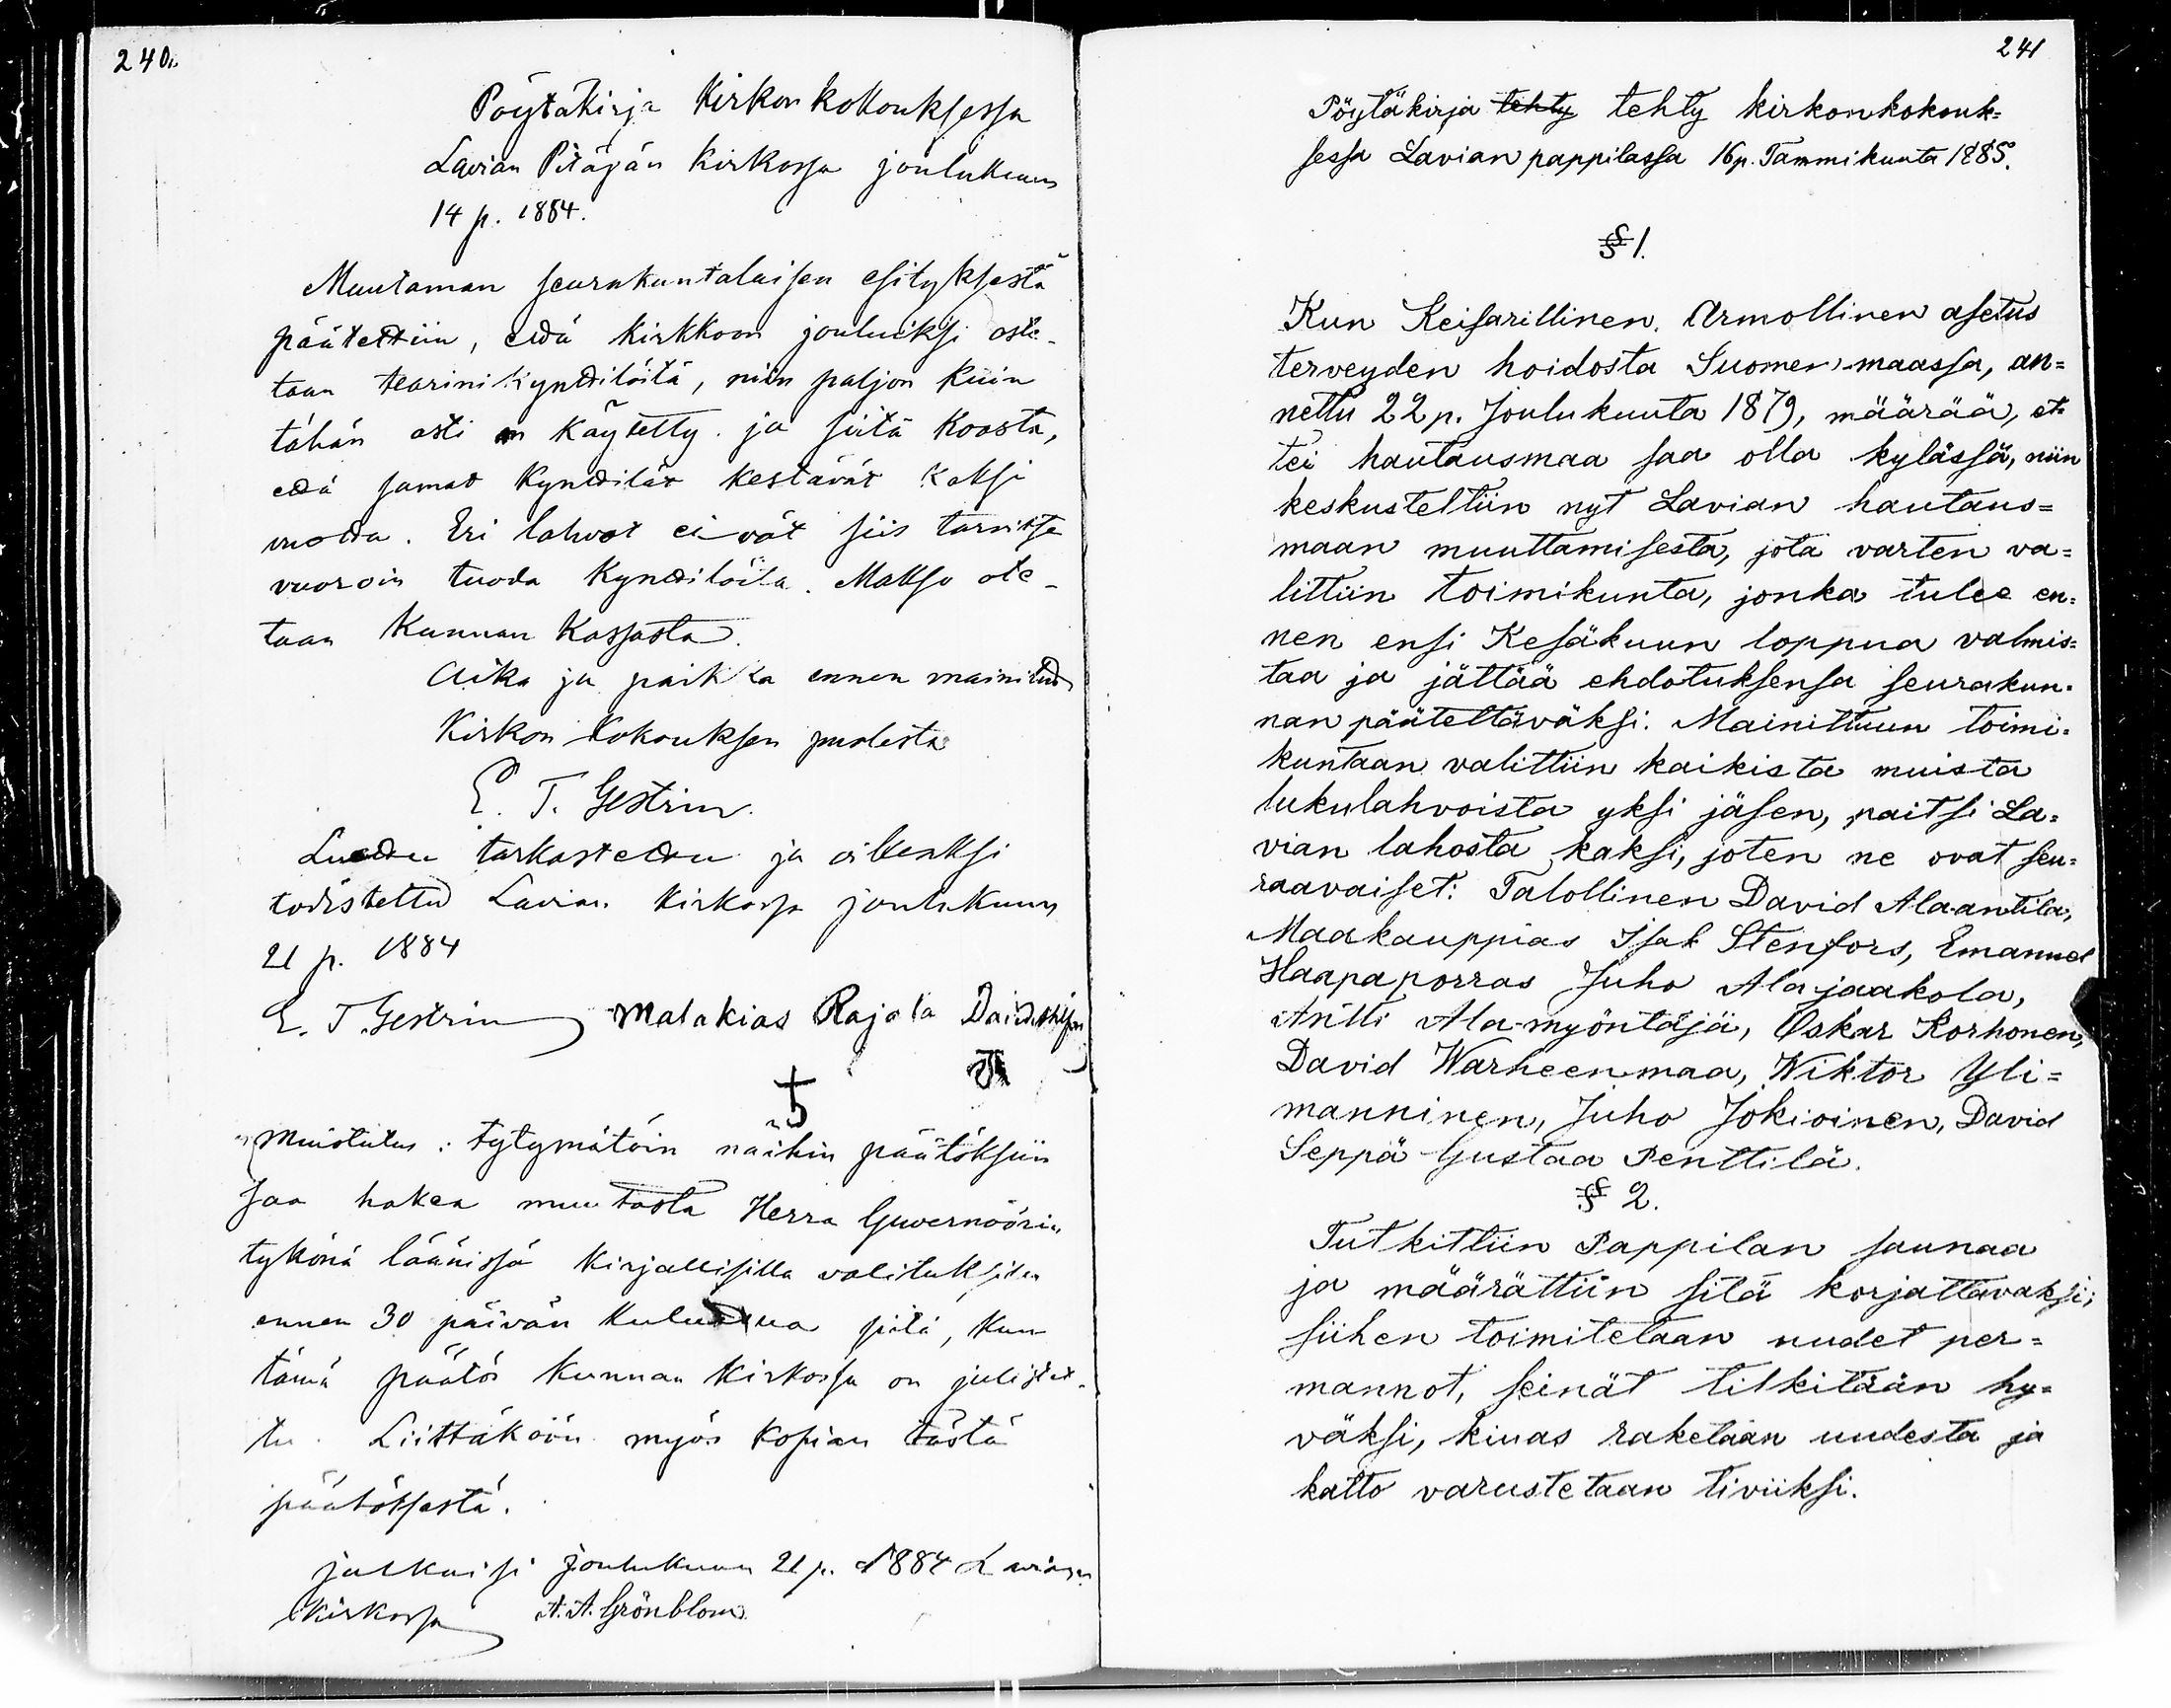 240.
Pöytäkirja Kirkon kokouksessa
Lavian Pitäjän Kirkossa joulukuun
14 p. 1884.
Muutaman seurakuntalaisen esityksestä
päätettiin, että kirkkoon jouluiksi oste-
taan stearinikynttilöitä, niin paljon kuin
tähän asti on käytetty ja siitä koosta,
että samat kynttilät kestävät kaksi
vuotta. Eri lahvot eivät siis tarvitse
vuoroin tuoda kynttilöitä. Makso ote-
taan Kunnan Kassasta.
Aika ja paikka ennen mainitut
Kirkon kokouksen puolesta
E. T. Gestrin.
Luettu tarkastettu ja oikeaksi
todistettu Lavian Kirkossa joulukuun
21 p. 1884
E. T. Gestrin Malakias Rajala
Muistutus: tytymätöin näihin päätöksiin
saa hakea muutosta Herra Guvernöörin
tykönä läänissä kirjallisilla valituksilla
ennen 30 päivän kuluttua siitä, kun
tämä päätös kunnan kirkossa on julistet-
tu. Liittäköön myös kopian tästä
päätöksestä.
julkaisi joulukuun 21 p. 1884 Lavian
Kirkossa A. A. Grönblom
241
Pöytäkirja tehty tehty kirkonkokouk=
sessa Lavian pappilassa 16p. Tammikuuta 1885.
§ 1.
Kun Keisarillinen. Armollinen asetus
terveyden hoidosta Suomen maassa, an=
nettu 22 p. Joulukuuta 1879, määrää, et-
tei hautausmaa saa olla kylässä, niin
keskusteltiin nyt Lavian hautaus=
maan muuttamisesta, jota varten va=
littiin toimikunta, jonka tulee en=
nen ensi Kesäkuun loppua valmis=
taa ja jättää ehdotuksensa seurakun=
nan pääteltäväksi. Mainittuun toimi=
kuntaan valittiin kaikista muista
lukulahvoista yksi jäsen, paitsi La=
vian lahosta kaksi, joten ne ovat seu=
raavaiset: Talollinen David Ala-antila,
Maakauppias Isak Stenfors, Emanuel
Haapaporras Juho Alajaakola,
Antti Ala-myöntäjä, Oskar Korhonen,
David Warheenmaa, Wiktor Yli=
manninen, Juho Jokioinen, David
Seppä Gustaa Penttilä.
§ 2.
Tutkittiin Pappilan saunaa
ja määrättiin sitä korjattavaksi;
siihen toimitetaan uudet per=
mannot, seinät tilkitään hy=
väksi, kiuas raketaan uudesta ja
katto varustetaan tiviiksi.